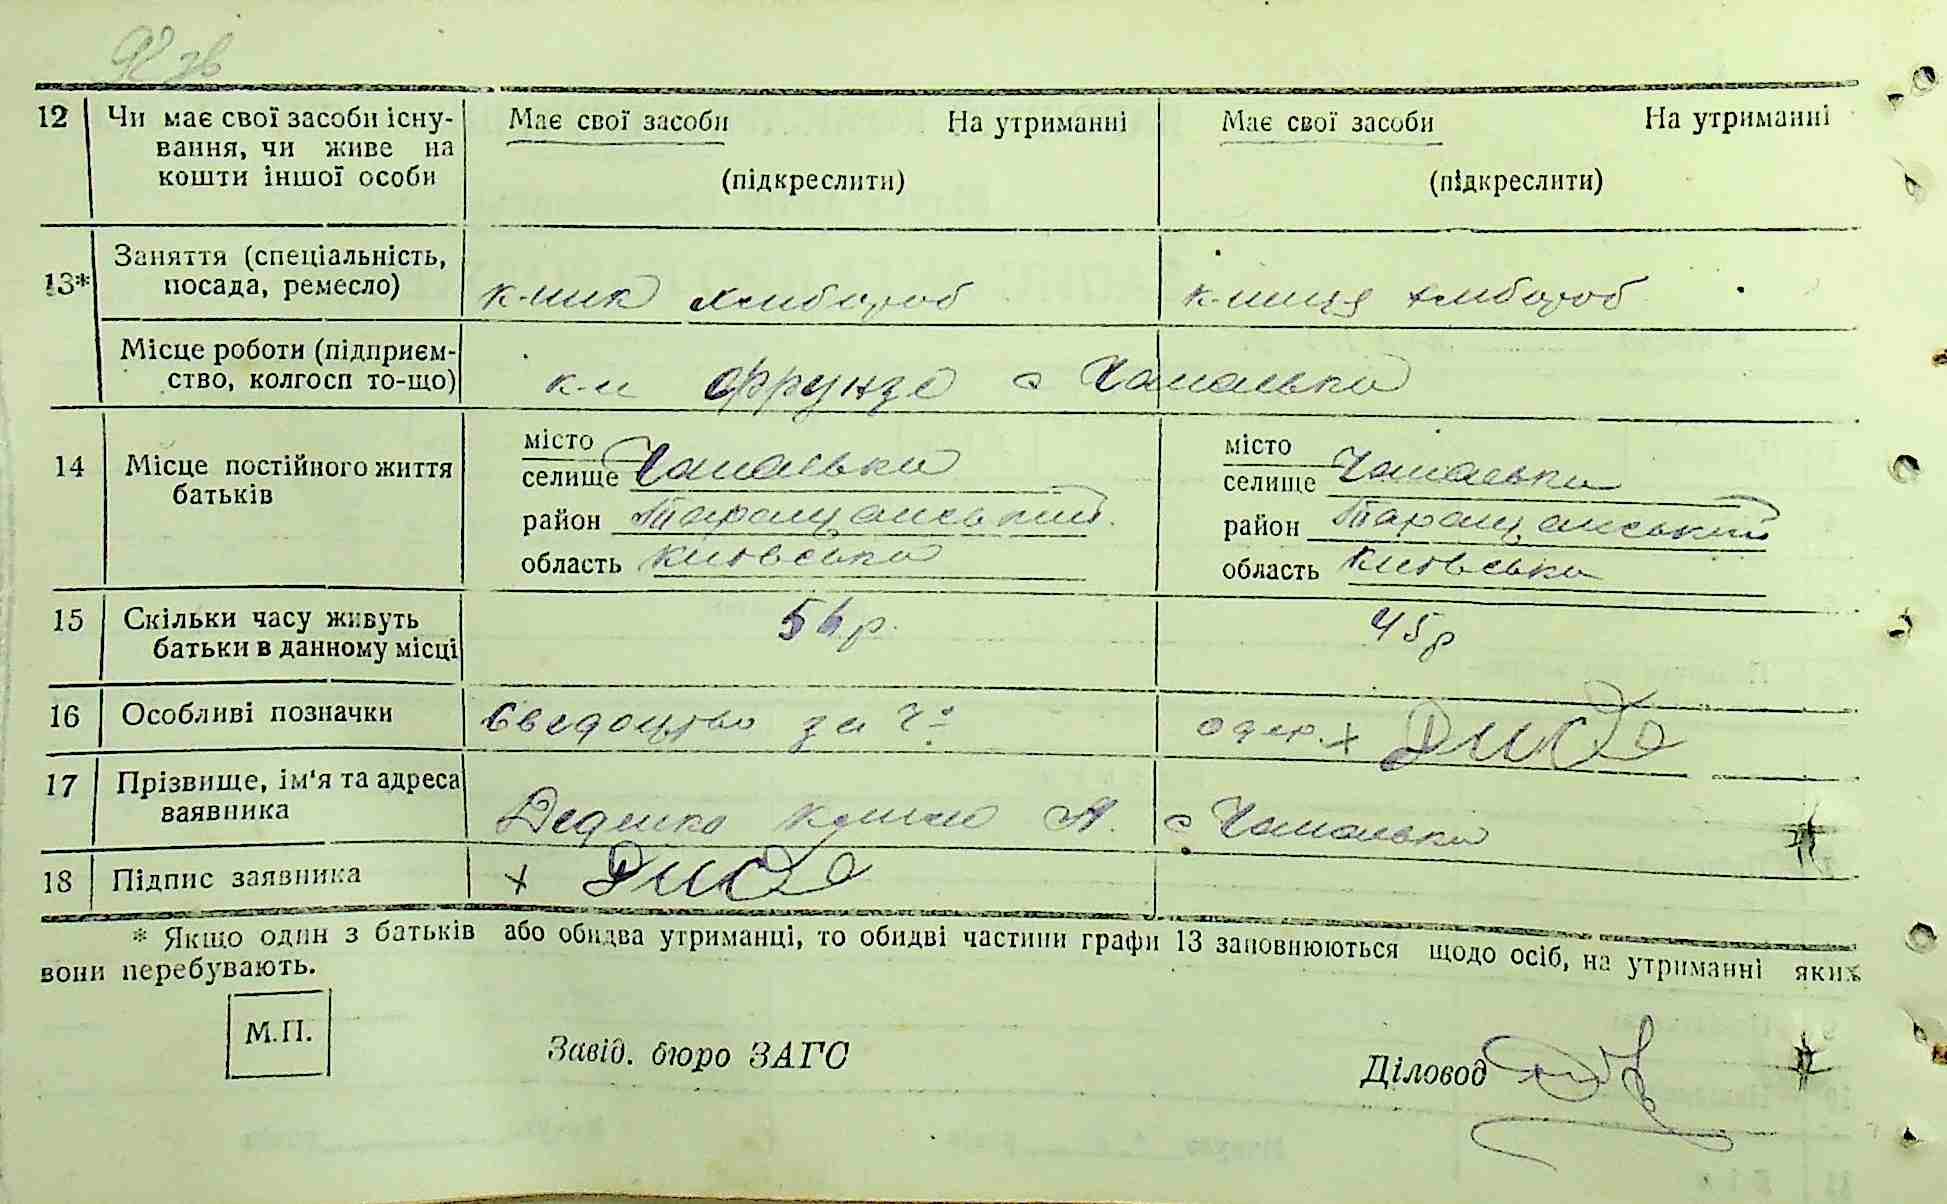 92 зв
12 Чи має свої засоби існу- Має свої засоби На утриманні Має свої засоби На утриманні
вання, чи живе на
кошти іншої особи (підкреслити) (підкреслити)
Заняття (спеціальність,
13* посада, ремесло) к-ник хлібороб к-ниця хлібороб
Місце роботи (підприєм-
ство, колгосп то-що) к-п Фрунзе с Чапаевка
14 Місце постійного життя місто місто
батьків селище Чапаевка селище Чапаевка
район Таращанський район Таращанський
область Київська область Київська
15 Скільки часу живуть 54 р. 45 р
батьки в данному місці
16 Особливі позначки Сведоцтво за № одер. х
17 Прізвище, ім'я та адреса
заявника А. с Чапаевка
18 Підпис заявника х
* Якщо один з батьків або обидва утриманці, то обидві частини графи 13 заповнюються щодо осіб, на утриманні яких
вони перебувають.
М.П.
Завід. бюро ЗАГС Діловод